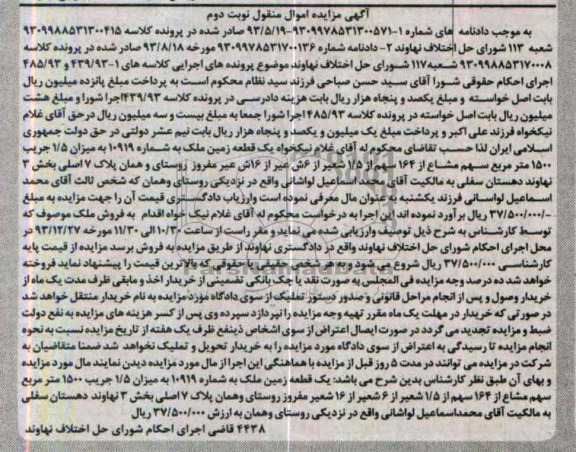 آگهی مزایده اموال منقول نوبت دوم
به موجب دادنامه های شماره ۱-۹۳۰۹۹۷۸۵۳۱۳۰۰۵۷۱-۹۳/۵/۱۹ صادر شده در پرونده کلاسه ۹۳۰۹۹۸۸۵۳۱۳۰۰۴۱۵
شعبه ۱۱۳ شورای حل اختلاف نهاوند ۲- دادنامه شماره ۹۳۰۹۹۷۸۵۳۱۷۰۰۱۳۶ مورخه ۹۳/۸/۱۸ صادر شده در پرونده کلاسه
۹۳۰۹۹۸۸۵۳۱۷۰۰۰۸ شعبه ۱۱۷ شورای حل اختلاف نهاوند موضوع پرونده های اجرایی کلاسه های ۱-۴۳۹/۹۳ و ۴۸۵/۹۳
اجرای احکام حقوقی شورا آقای سید حسن صباحی فرزند سید نظام محکوم است به پرداخت مبلغ پانزده میلیون ریال
بابت اصل خواسته و مبلغ یکصد و پنجاه هزار ریال بابت هزینه دادرسی در پرونده کلاسه ۴۳۹/۹۳ اجرا شورا و مبلغ هشت
میلیون ریال بابت اصل خواسته در پرونده کلاسه ۴۸۵/۹۳ اجرا شورا جمعا به مبلغ بیست و سه میلیون ریال در حق آقای غلام
نیکخواه فرزند علی اکبر و پرداخت مبلغ یک میلیون و یکصد و پنجاه هزار ریال بابت نیم عشر دولتی در حق دولت جمهوری
اسلامی ایران لذا حسب تقاضای محکوم له آقای غلام نیکخواه یک قطعه زمین ملک به شماره ۱۰۹۱۹ به میزان ۱/۵ جریب
۱۵۰۰ متر مربع سهم مشاع از ۱۶۴ سهم از ۱/۵ شعیر از ۶ش عیر از ۱۶ش عیر مفروز روستای وهمان پلاک ۷ اصلی بخش ۳
نهاوند دهستان سفلی به مالکیت آقای محمد اسماعیل لواشانی واقع در نزدیکی روستای وهمان که شخص ثالث آقای محمد
اسماعیل لواسانی فرزند یکشنبه به عنوان مال معرفی نموده است وارزیاب دادگستری قیمت آن را جهت مزایده به مبلغ
۳۷/۵۰۰/۰۰۰/- ریال برآورد نموده اند این اجرا به درخواست محکوم له آقای غلام نیک خواه اقدام به فروش ملک موصوف که
توسط کارشناس به شرح ذیل توصیف وارزیابی شده می نماید و مقرر است از ساعت ۱۰/۳۰ الی ۱۱/۳۰ مورخه ۹۳/۱۲/۲۷ در
محل اجرای احکام شورای حل اختلاف نهاوند واقع در دادگستری نهاوند از طریق مزایده به فروش برسد مزایده از قیمت پایه
کارشناسی ۳۷/۵۰۰/۰۰۰ ریال شروع می شود وبه هر شخص حقیقی یا حقوقی که بالاترین قیمت را پیشنهاد نماید فروخته
خواهد شد ده درصد وجه مزایده فی المجلس به صورت نقد یا چک بانکی تضمینی از خریدار اخذ و مابقی ظرف مدت یک ماه از
خریدار وصول و پس از انجام مراحل قانونی و صدور دستور تملیک از سوی دادگاه مورد مزایده به نام خریدار منتقل خواهد شد
در صورتی که خریدار در مهلت یک ماه مقرر تهیه وجه مزایده را نپردازد سپرده وی پس از کسر هزینه های مزایده به نفع دولت
ضبط و مزایده تجدید می گردد در صورت ایصال اعتراض از سوی اشخاص ذینفع ظرف یک هفته از تاریخ مزایده نسبت به نحوه
انجام مزایده تا رسیدگی به اعتراض از سوی دادگاه مورد مزایده را به خریدار تحویل و تملیک نخواهد شد ضمنا متقاضیان به
شرکت در مزایده می توانند در مدت ۵ روز قبل از مزایده با هماهنگی این اجرا از مال مورد مزایده دیدن نمایند مال مورد مزایده
و بهای آن طبق نظر کارشناس بدین شرح می باشد: یک قطعه زمین ملک به شماره ۱۰۹۱۹ به میزان ۱/۵ جریب ۱۵۰۰ متر مربع
سهم مشاع از ۱۶۴ سهم از ۱/۵ شعیر از ۶ شعیر از ۱۶ شعیر مفروز روستای وهمان پلاک ۷ اصلی بخش ۳ نهاوند دهستان سفلی
به مالکیت آقای محمد اسماعیل لواشانی واقع در نزدیکی روستای وهمان به ارزش ۳۷/۵۰۰/۰۰۰ ریال
۴۴۳۸ قاضی اجرای احکام شورای حل اختلاف نهاوند